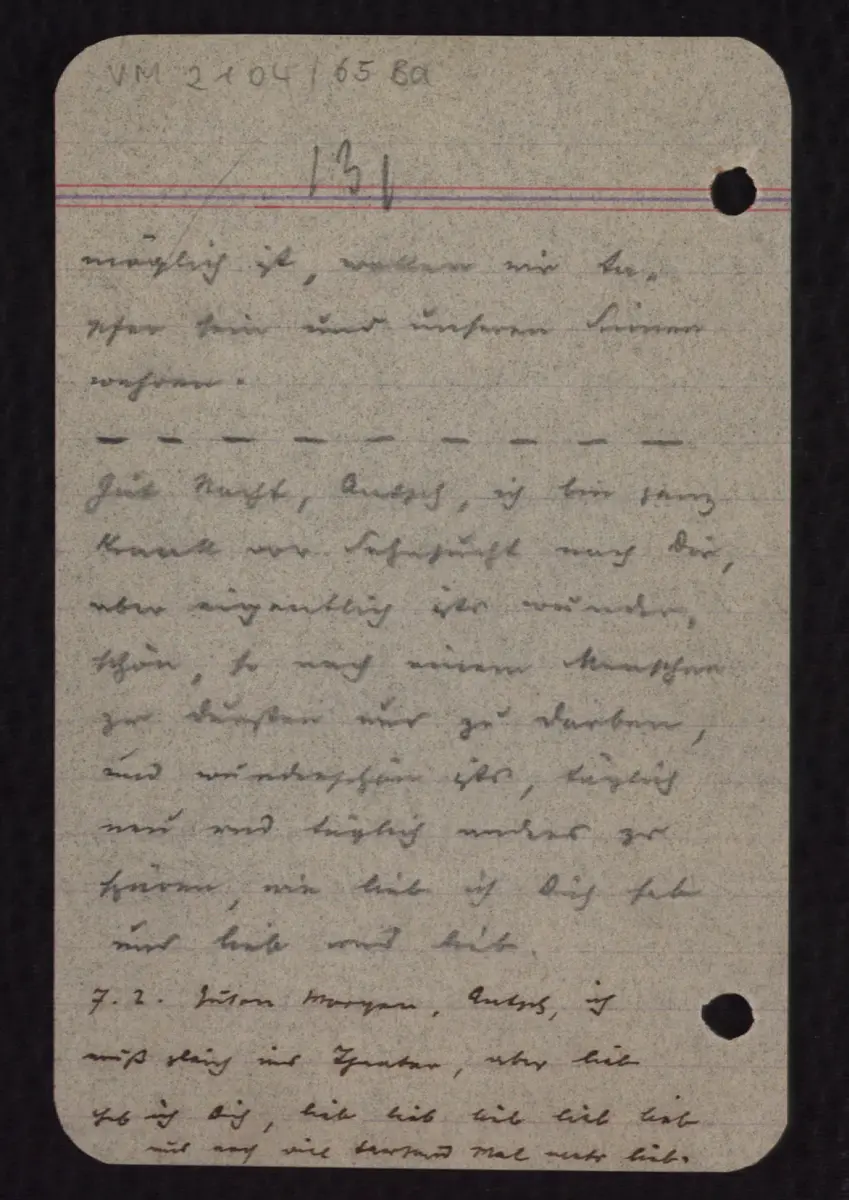 VM 2104/65 Ba
131
möglich ist, wollen wir ta-
pfer sein und unseren
wahren.
Gut Nacht, Antsch, ich bin ganz
krank vor Sehnsucht nach Dir,
aber eigentlich ists wunder-
schön, so nach einem Menschen
zu dursten und zu darben,
und wunderschön ists, täglich
neu und täglich anders zu
spüren, wie lieb ich Dich hab
und lieb und lieb.
7. 2. Guten Morgen, Antsch, ich
muß gleich ins Theater, aber lieb
hab ich Dich, lieb lieb lieb lieb lieb
und noch viel tausend Mal mehr lieb.